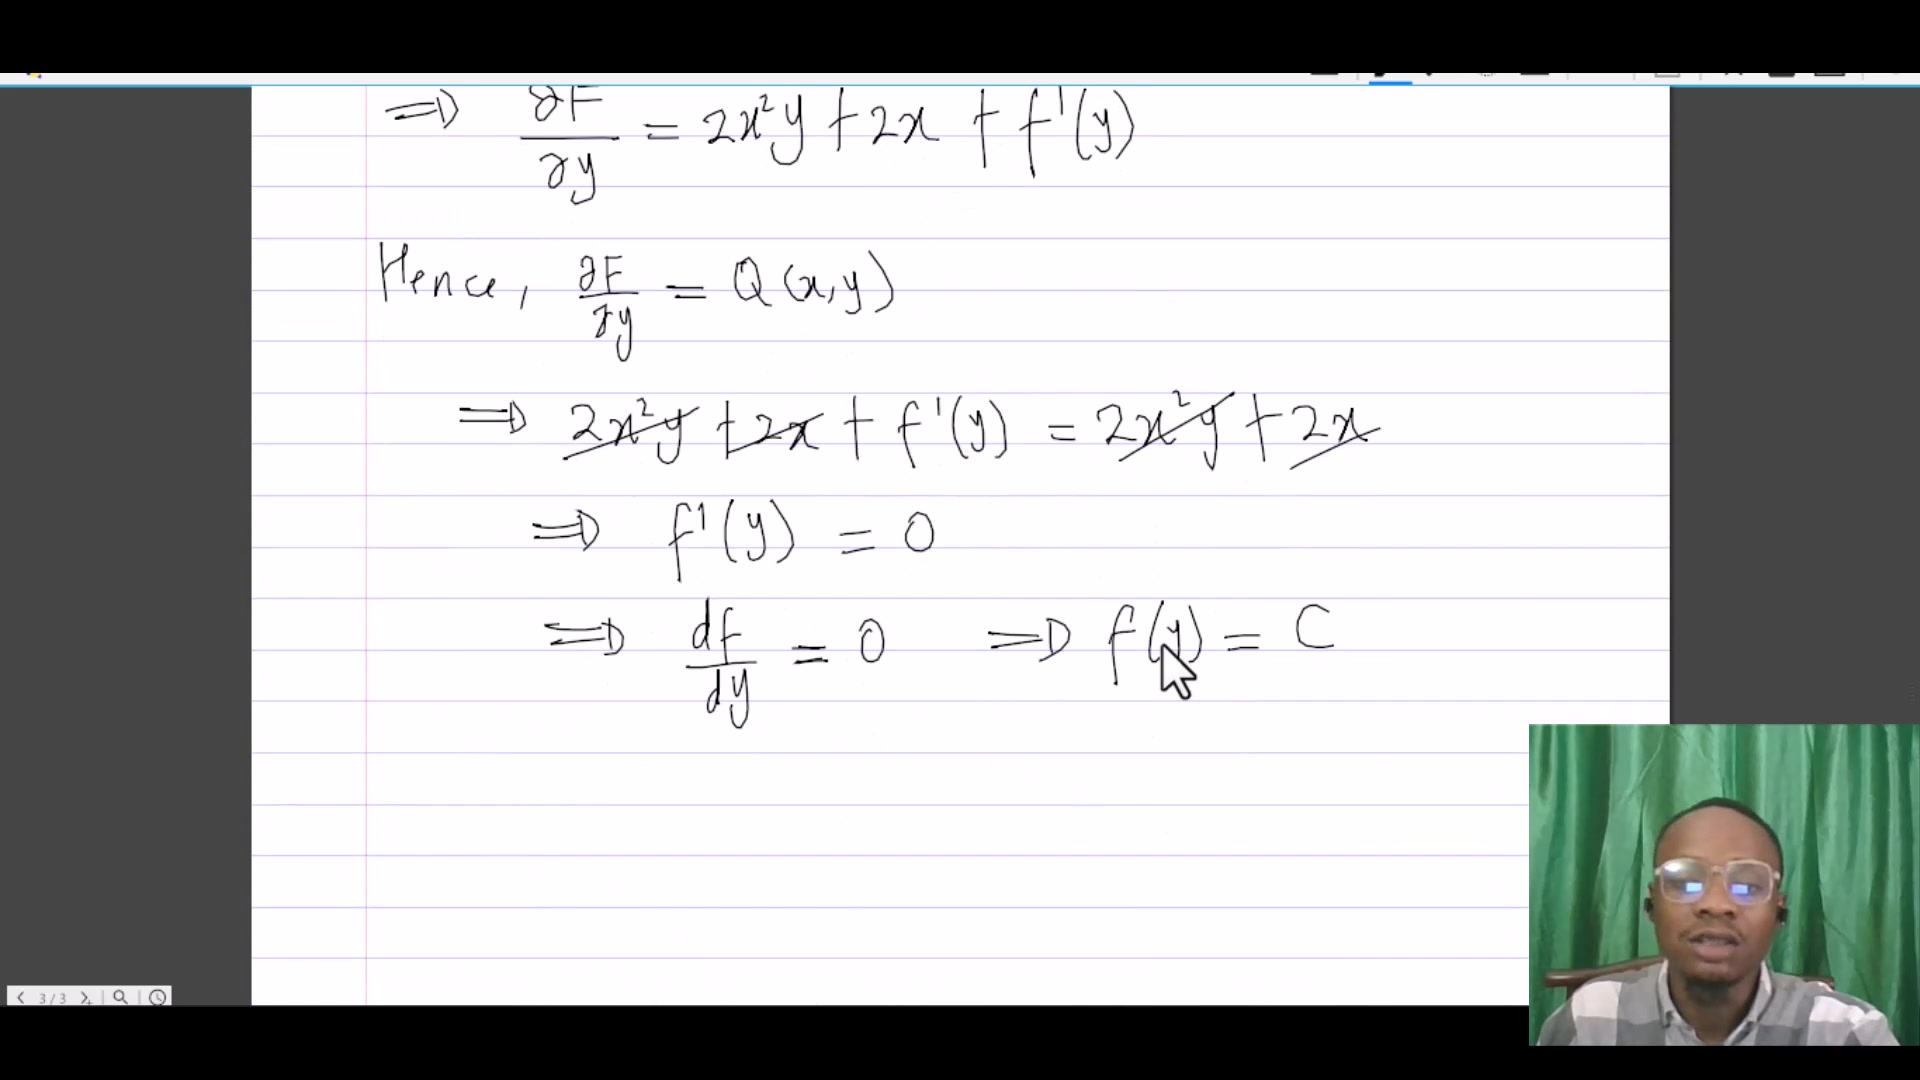 ⇒ ∂F/∂y = 2x²y + 2x + f'(y)
Hence, ∂F/∂y = Q(x,y)
⇒ 2x²y + 2x + f'(y) = 2x²y + 2x
⇒ f'(y) = 0
⇒ df/dy = 0 ⇒ f(y) = C
3/3